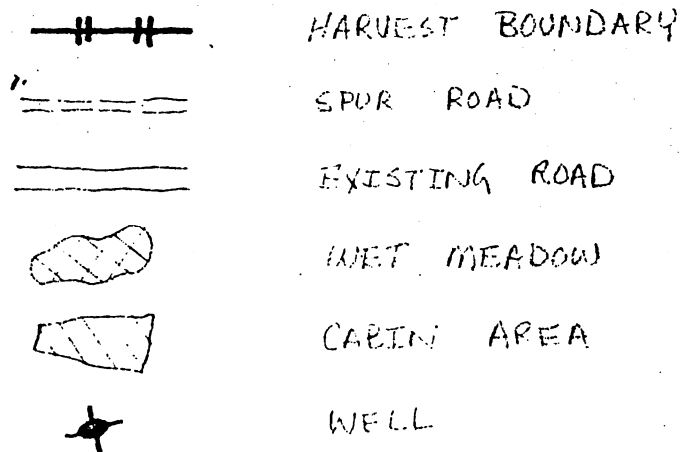 HARVEST BOUNDARY
SPUR ROAD
EXISTING ROAD
WET MEADOW
CABIN AREA
WELL